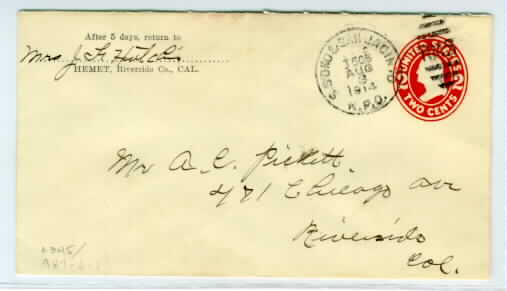 After 5 days, return to
Mrs J. H.
HEMET, Riverside Co., CAL.
S. B'DNO & SAN JACINTO
1505
AUG
1914
R.P.O.
UNITED STATES
TWO CENTS
Mr A. C. Pickett
471 Chicago Ave
Riverside
Cal.